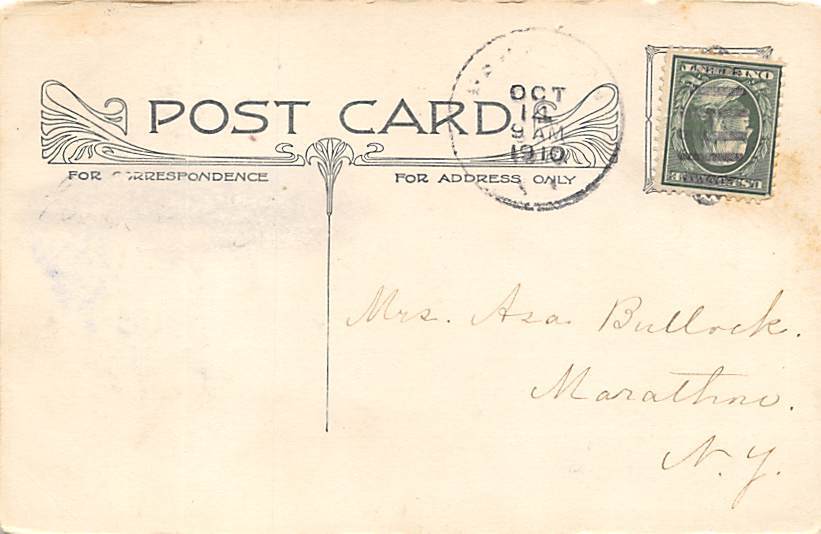 POST CARD.
FOR CORRESPONDENCE
FOR ADDRESS ONLY
OCT
14
9 AM
1910
Mrs. Asa Bullock.
Marathon.
N.Y.